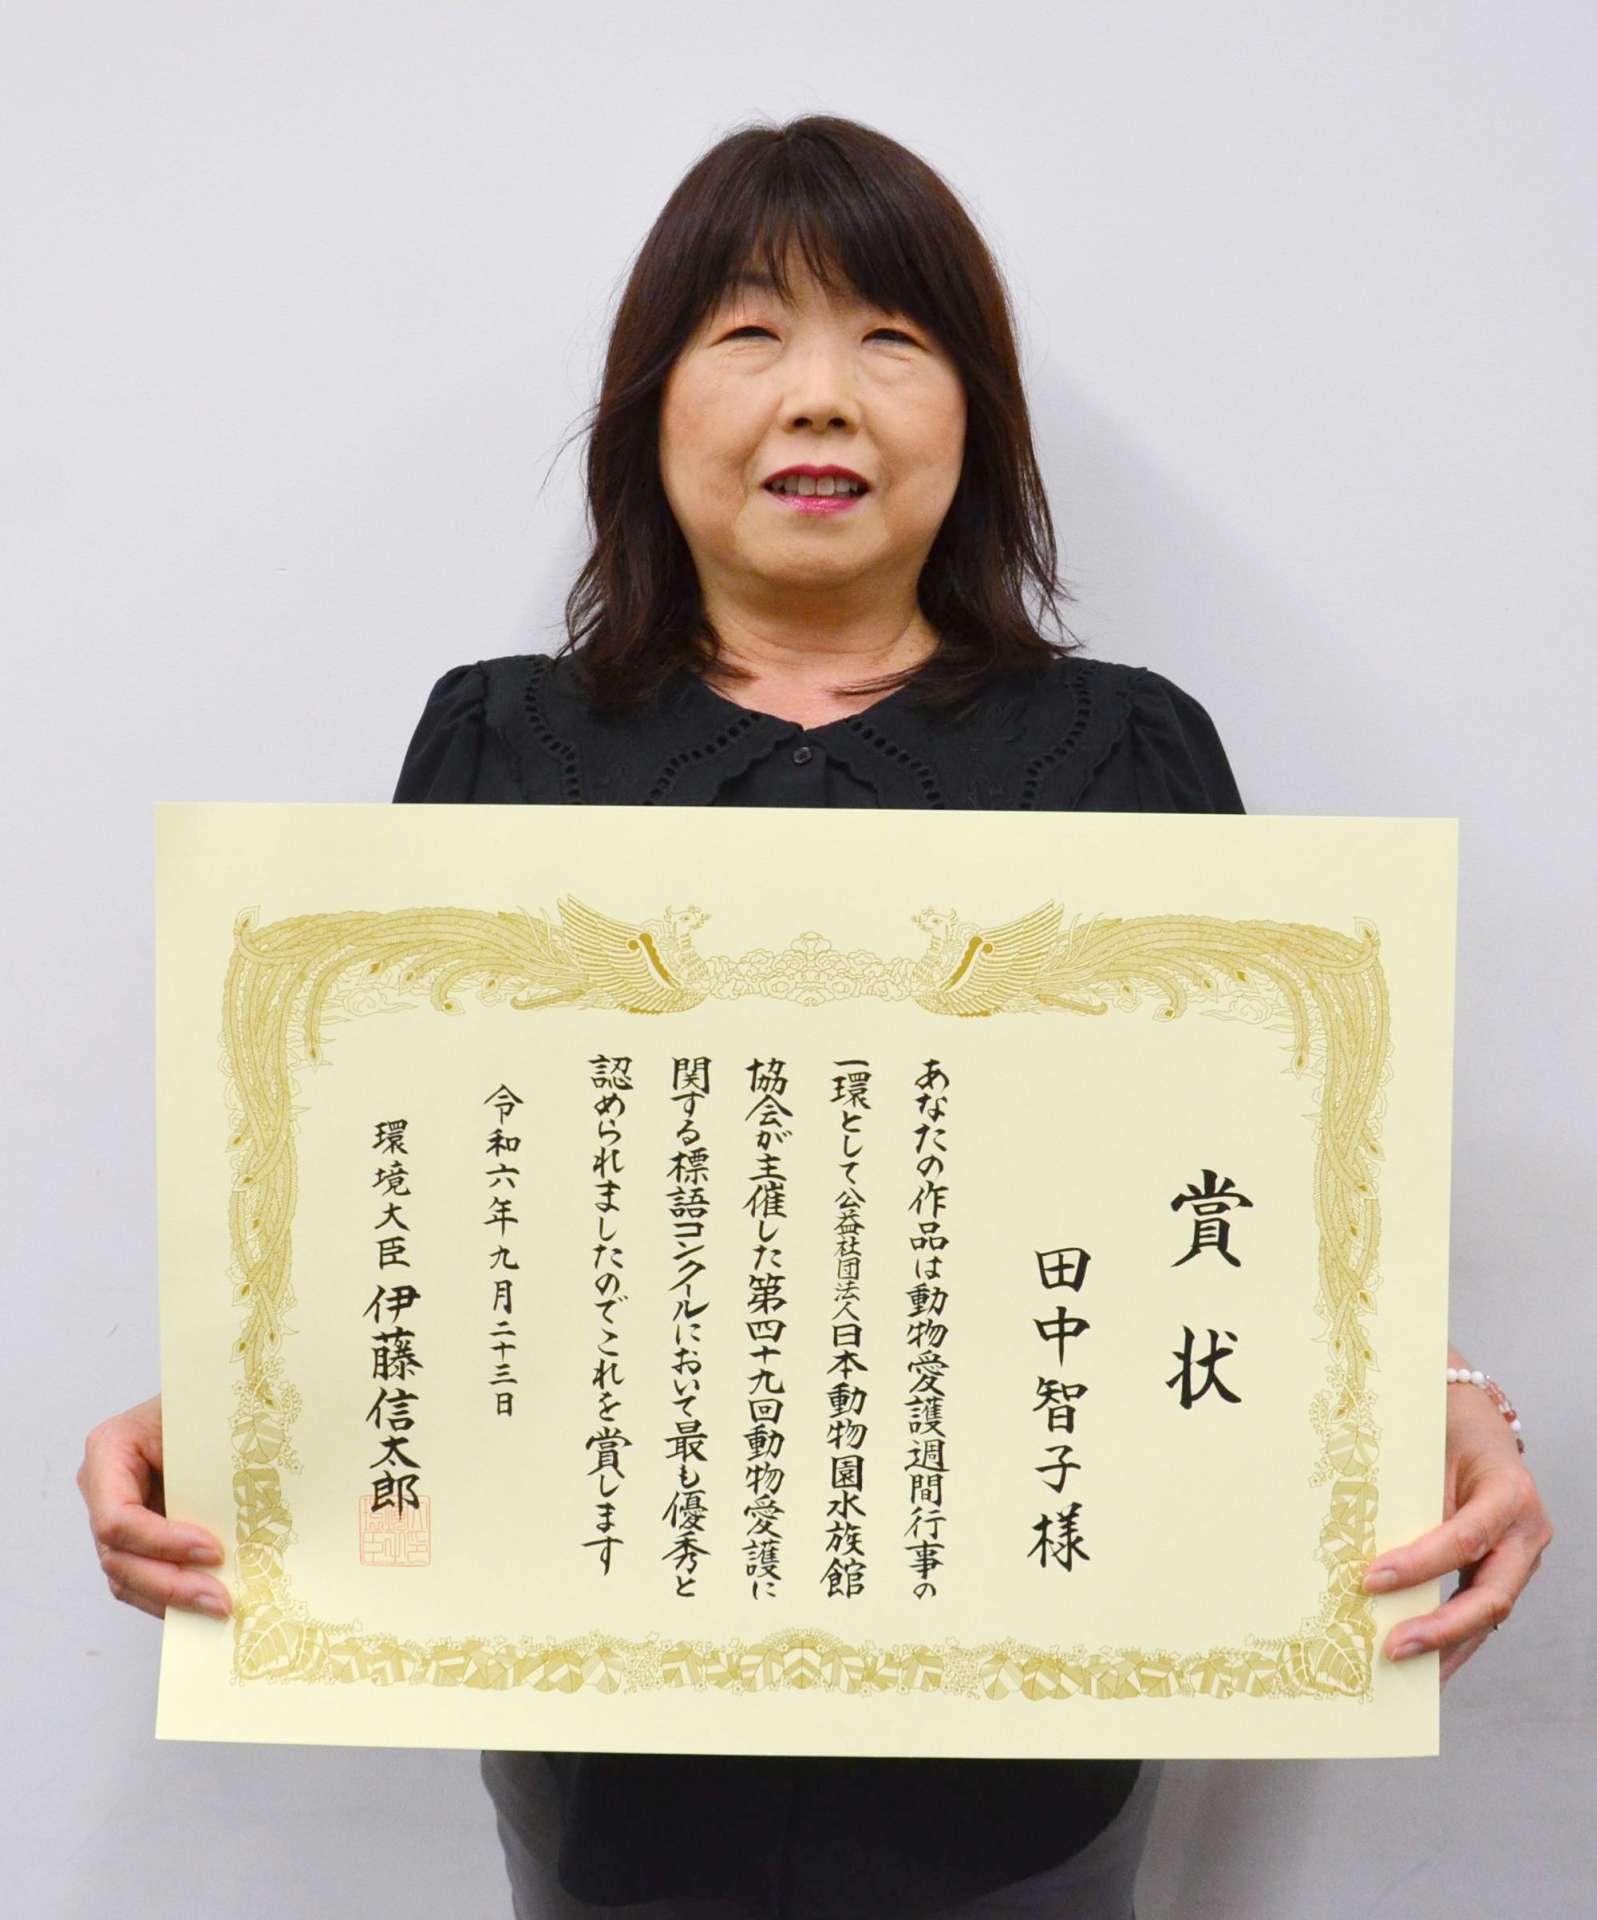 賞状
田中智子様
あなたの作品は動物愛護週間行事の
一環として公益社団法人日本動物園水族館
協会が主催した第四十九回動物愛護に
関する標語コンクールにおいて最も優秀と
認められましたのでこれを賞します
令和六年九月二十三日
環境大臣 伊藤信太郎